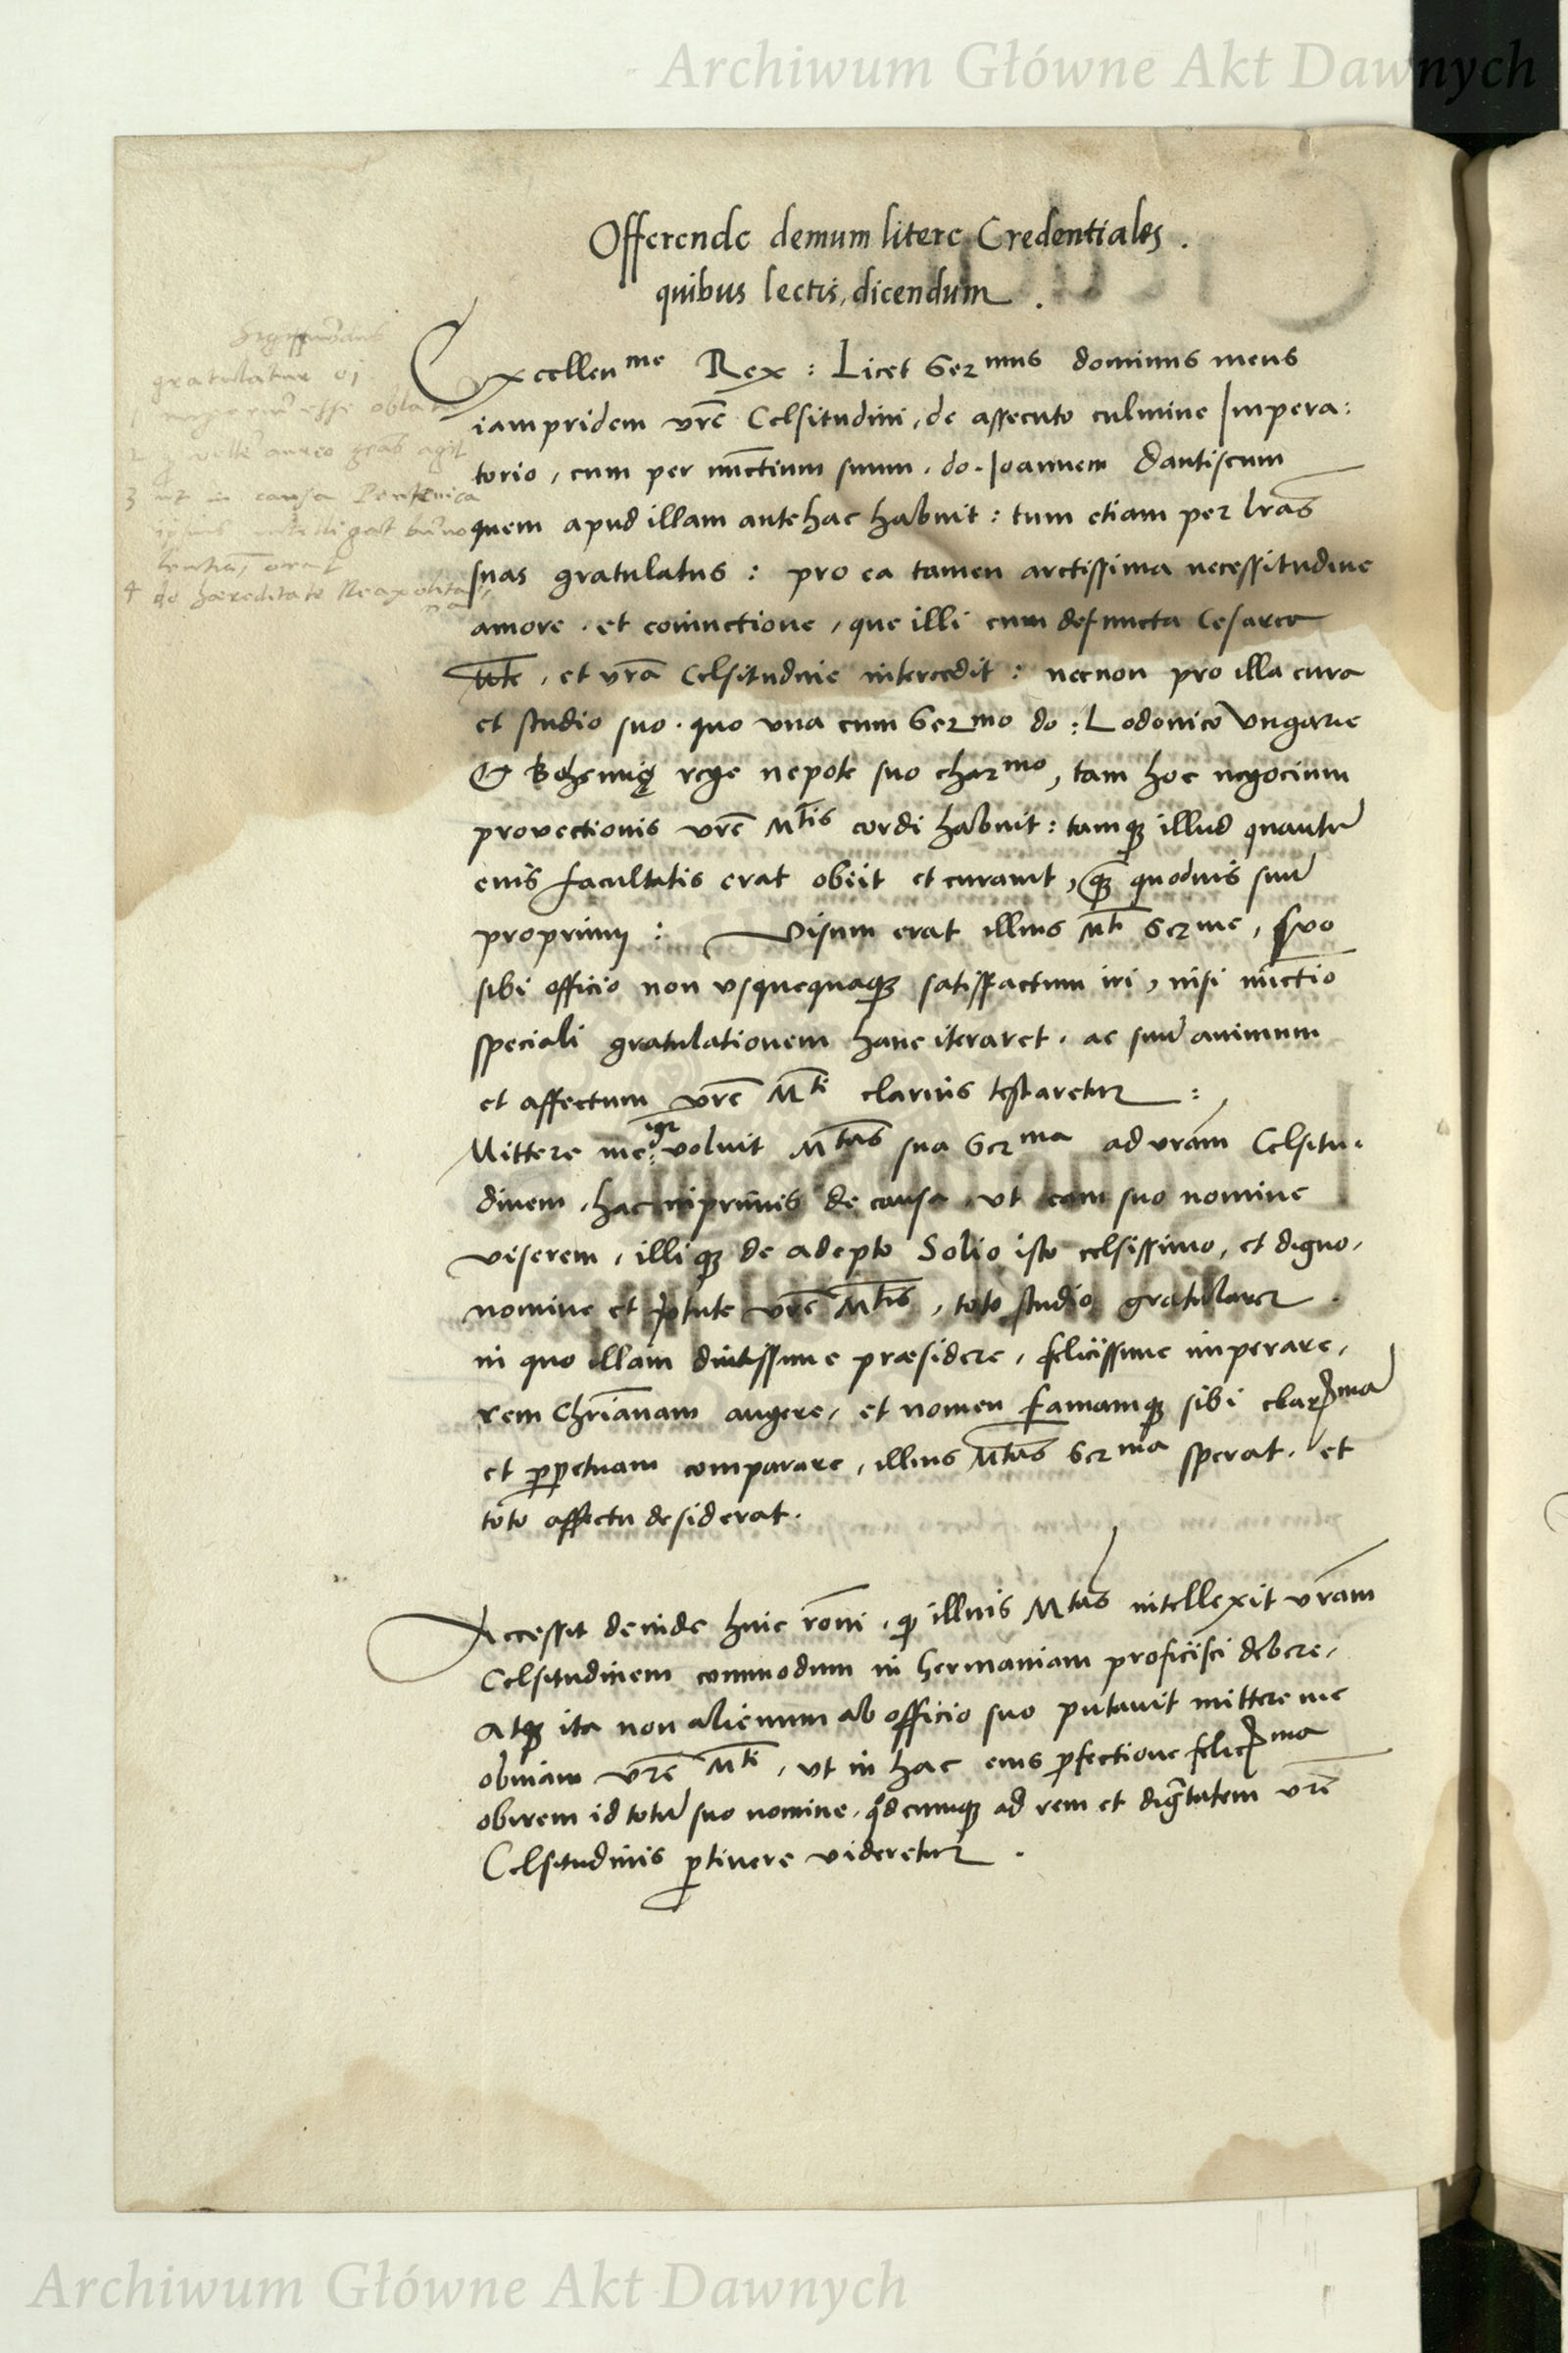 Archiwum Główne Akt Dawnych
Offerende demum litere Credentiales .
quibus lectis, dicendum .
Excellen^me Rex : Licet Ser^mus dominus meus
iampridem vrē Celsitudini, de assecuto culmine Impera:
torio, cum per nūctium suum . do. Joannem Dantiscum
quem apud illam antehac habuit : tum etiam per lrās
suas gratulatus : pro ea tamen arctissima necessitudine
amore . et coniunctione, que illi cum defuncta Cesarea
Mte, et vrā Celsitudine intercedit : necnon pro illa cura
et studio suo . quo vna cum Ser^mo do : Lodouico Vngarie
Et Bohemię rege nepote suo char^mo, tam hoc negocium
prouectionis vrē M^tis cordi habuit : tamq3 illud quantū
eius facultatis erat obiit et curauit, quodvis suū
proprium : Visum erat illius M^ti Ser^me, suo
sibi officio non vsquequaq3 satisfactum iri, nisi nūctio
speciali gratulationem hanc iteraret . ac suū animum
et affectum vrē M^ti clarius testaretur :
Mittere me igr voluit M^tas sua Ser^ma ad vrām Celsitu-
dinem, hac inprimis de causa, vt eam suo nomine
viserem, illiq3 de adepto Solio isto celsissimo, et digno,
nomine et vtute vrē M^tis, toto studio gratularer .
in quo illam diutissime præsidere, felicissime imperare,
rem Chrīanam augere, et nomen famamq3 sibi clar^ma
et ppetuam comparare, illius M^tas Ser^ma sperat . et
toto affectu desiderat .
Accessit deinde huic rōni . q illius M^tas intellexit vrām
Celsitudinem commodum in Germaniam proficisci debere,
Atq3 ita non alienum ab officio suo putauit mittere me
obuiam vrē M^ti, vt in hac eius pfectione felic^ma
obirem id totū suo nomine, qdcumq3 ad rem et dignitatem vrē
Celsitudinis ptinere videretur .
gratulatur ei
2 velle aureo grās agit
3 ut in causa Prutenica
4 de hæreditate Neapolita
na
Archiwum Główne Akt Dawnych